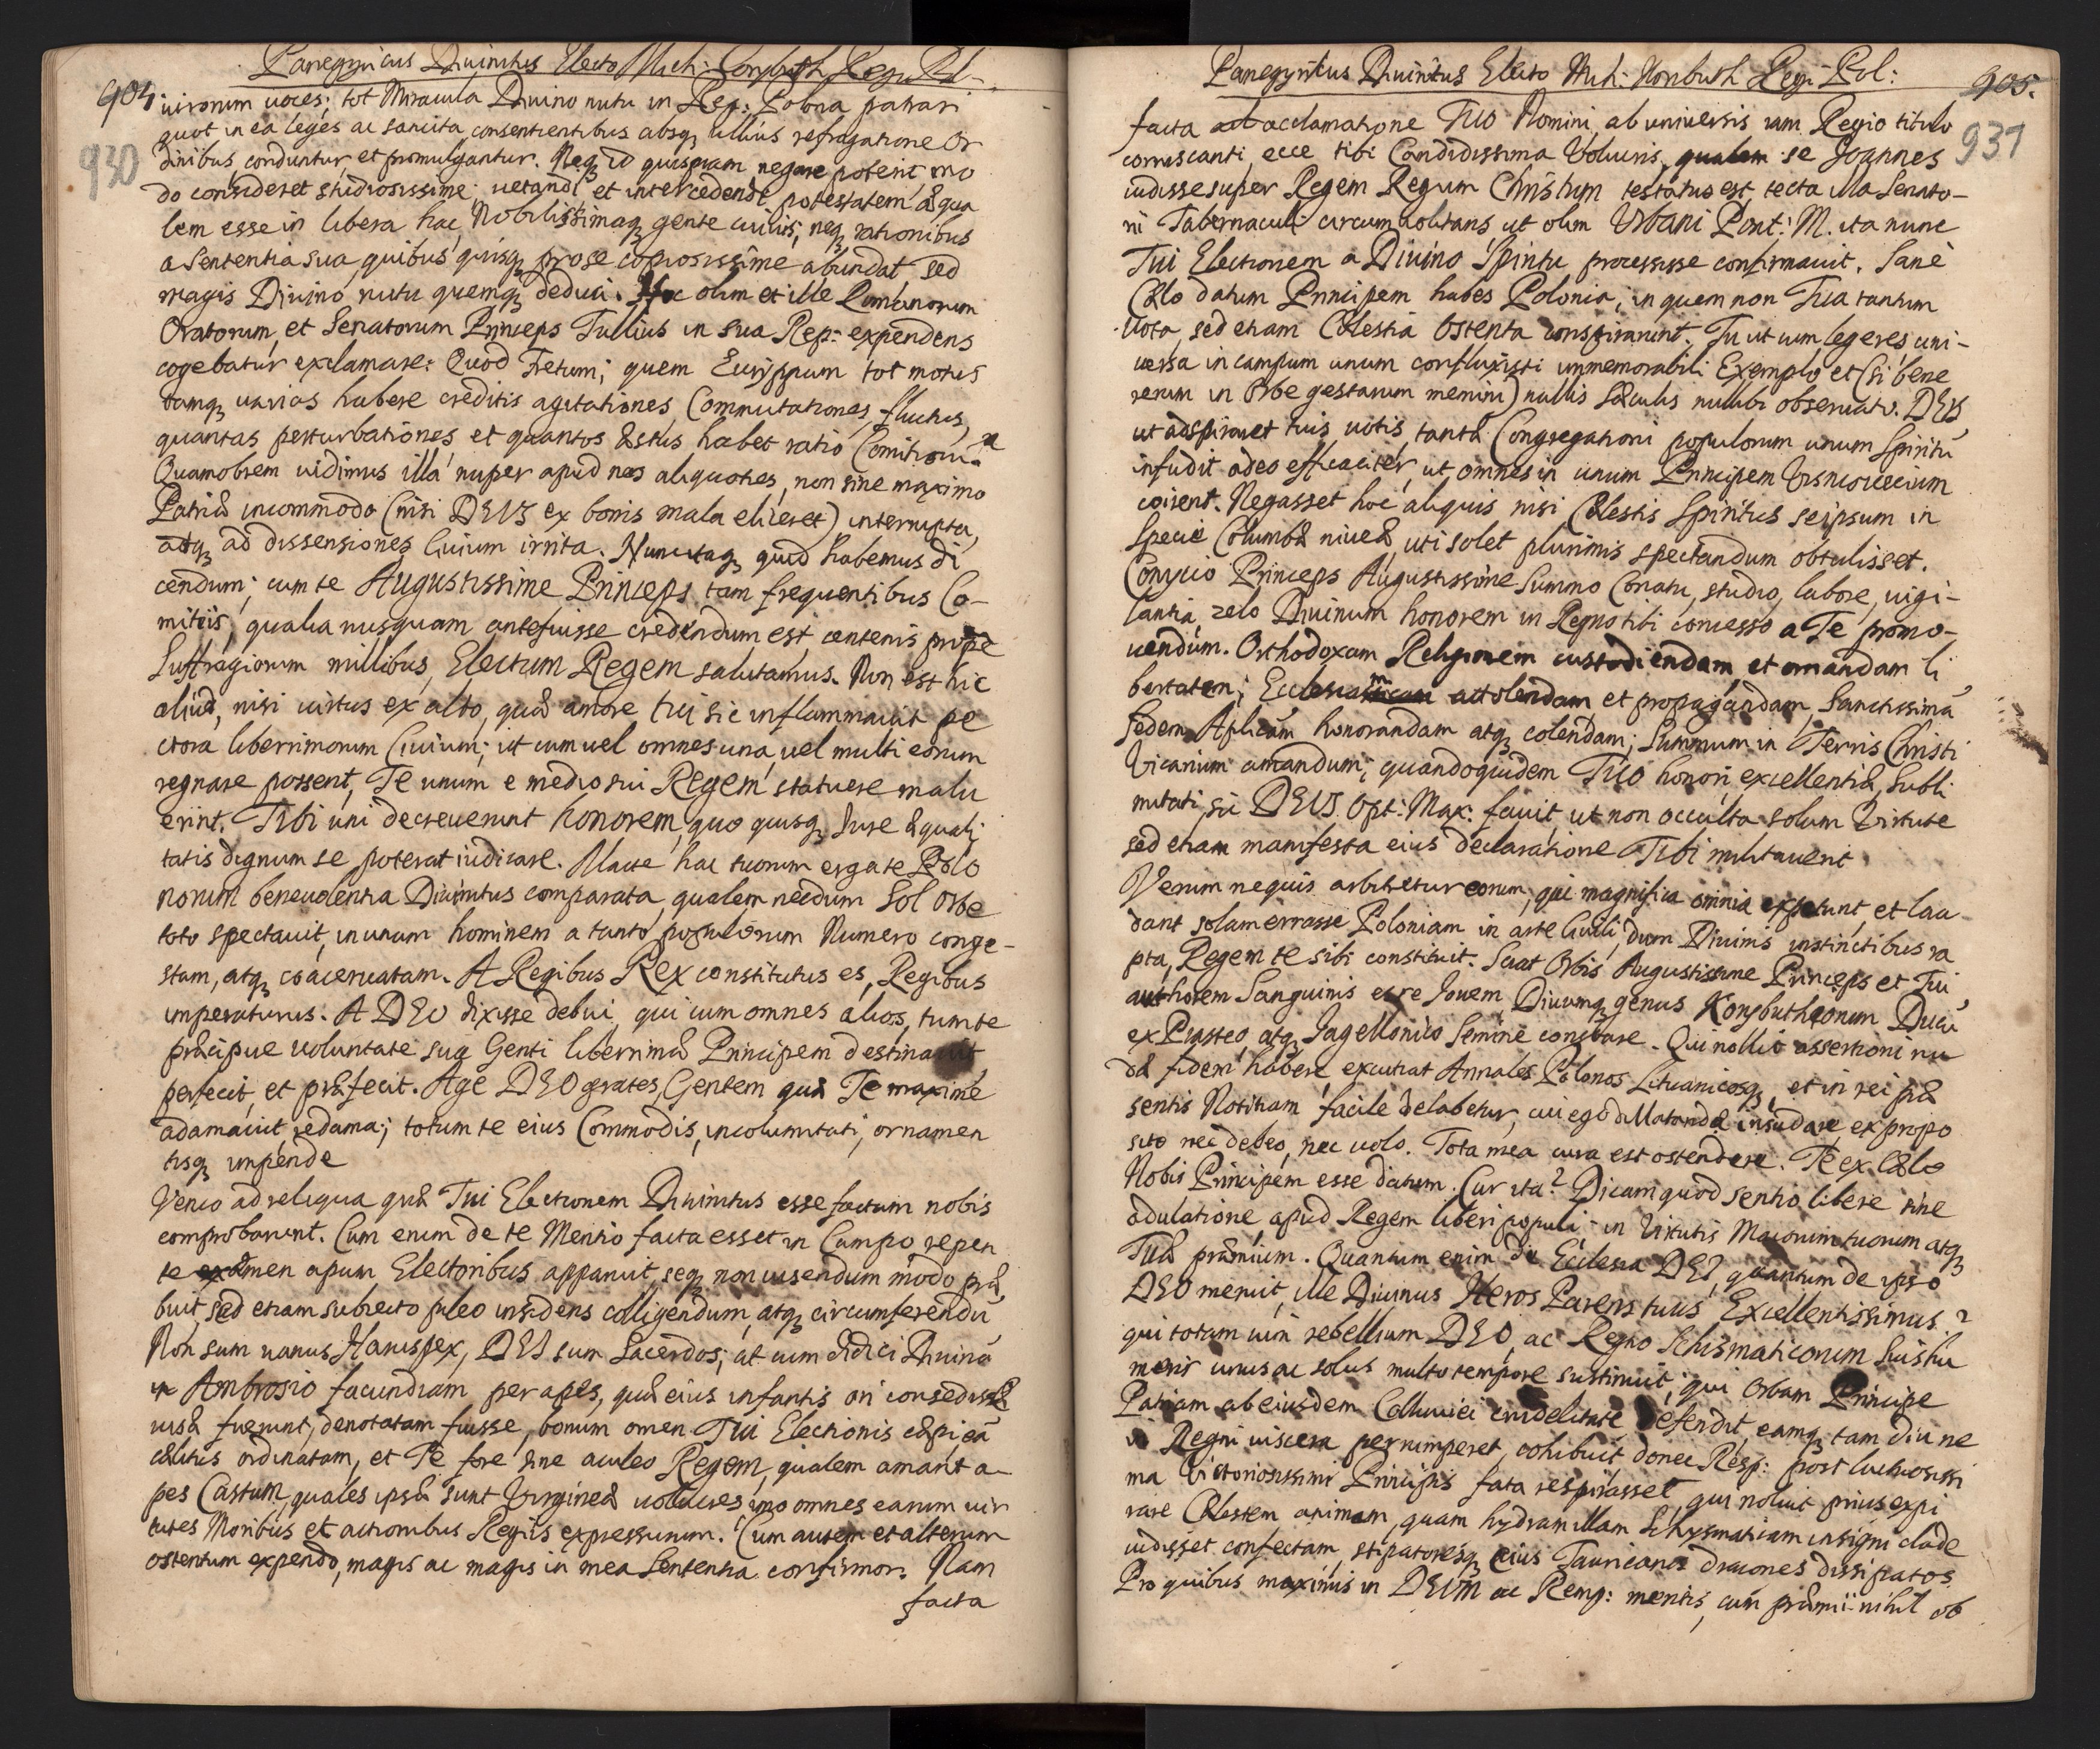 Panegyricus Divinitus Electo Mich: Korybuth Regi Pol:
904
930
uironum uoces; tot Miracula Diuino nutu in Rep: Polona patrari
quot in ea leges ac sancita consentientibus absq ullius refragatione Or
dinibus conduntur, et promulgantur. Neq id quispiam negare poterit, mo
do consideret studiosissime uetandi et intercedendi potestatem æqua
lem esse in libera hac, Nobilissimaq gente ciuiis; neq rationibus
a Sententia sua, quibus quisq pro se copiosissime abundat sed
magis Diuino nutu quemq deduci. Hoc olim et ille Romanorum
Oratorum, et Senatorum Princeps Tullius in sua Rep: expendens
cogebatur exclamare: Quod Fretum; quem Eurypum tot motus
tamq uarias habere creditis agitationes, Commutationes, fluctus,
quantas perturbationes et quantos æstus habet ratio Comitioru.
Quamobrem uidimus illa nuper apud nos aliquoties, non sine maximo
Patriæ incommodo (nisi DEUS ex bonis mala eliceret) interrupta,
atq ad dissensiones Ciuium irrita. Nunc itaq quid habemus di
cendum; cum te Augustissime Princeps tam frequentibus Co-
mitiis, qualia nusquam antefuisse credendum est, centenis prope
Suffragiorum millibus, Electum Regem salutamus. Non est hic
aliud, nisi uirtus ex alto, quæ amore tui sic inflammauit pe
ctora liberrimorum Ciuium; ut cum uel omnes una, uel multi eorum
regnare possent, Te unum e medio sui Regem statuere malu
erint. Tibi uni decreuerunt honorem, quo quisq Iure æquali
tatis dignum se poterat iudicare. Macte hac tuorum erga te Polo
norum beneuolentia Diuinitus comparata, qualem necdum Sol Orbe
toto spectauit, in unum hominem a tanto populorum Numero conge-
stam, atq coaceruatam. A Regibus Rex constitutus es, Regibus
imperaturus. A DEO dixisse debui, qui cum omnes alios, tum te
præcipue uoluntate sua Genti liberrimæ Principem destinauit
perfecit, et præfecit. Age DEO grates, Gentem quæ Te maxime
adamauit, redama; totum te eius Commodis, incolumitati, ornamen
tisq impende
Venio ad reliqua quæ Tui Electionem Diuinitus esse factam nobis
comprobarunt. Cum enim de te Mentio facta esset in Campo repen
te examen apum Electoribus apparuit, seq non uisendum modo præ
buit, sed etiam subiecto pileo insidens colligendum, atq circumferendu,
Non sum uanus Haruspex, DEI sum Sacerdos; at cum didici Diuina
in Ambrosio facundiam per apes, quæ eius infantis ori consedisse
uisæ fuerunt, denotatam fuisse, bonum omen Tui Electionis cæpi eā
cælitus ordinatam, et Te fore sine aculeo Regem, qualem amant a-
pes Castum, quales ipsæ sunt Virgineæ uolucres, imo omnes earum uir
tutes Moribus et actionibus Regiis expressurum. Cum autem et alterum
ostentum expendo, magis ac magis in mea Sententia confirmor. Nam
facta
Panegyricus Divinitus Electo Mich: Koributh Regi Pol:
905.
931
facta acclamatione Tuo Nomini, ab uniuersis iam Regio titulo
corruscanti, ecce tibi Candidissima Volucris, qualem se Joannes
uidisse super Regem Regum Christum testatus est, tecta illa Senato-
rii Tabernaculi circumuolitans ut olim Vrbani Pont: M. ita nunc
Tui Electionem a Diuino Spiritu processisse confirmauit. Sane
Cælo datum Principem habes Polonia; in quem non Tua tantum
Vota, sed etiam Cælestia Ostenta conspirarunt. Tu ut cum legeres uni-
uersa in campum unum confluxisti immemorabili Exemplo, et (si bene
rerum in Orbe gestarum memini) nullis Sæculis nullibi obseruato. DEUS
ut adspiraret tuis uotis, tantæ Congregationi populorum unum Spiritū
infudit adeo efficaciter, ut omnes in unum Principem Visniouiecium
coirent. Negasset hoc aliquis nisi Cælestis Spiritus seipsum in
Specie Columbæ niueæ, uti solet plurimis spectandum obtulisset.
Conycio Princeps Augustissime Summo Conatu, studio, labore, uigi-
lantia, zelo Diuinum honorem in Regno tibi concesso a Te promo-
uendum. Orthodoxam Religionem custodiendam, et ornandam li
bertatem; Ecclesiam attolendam et propagandam, Sanctissimā
Sedem Aplicam honorandam atq colendam; Summum in Terris Christi
Vicarium amandum; quandoquidem Tuo honori, excellentiæ, Subli
mitati, sic DEUS Opt: Max: fauit, ut non occulta solum Virtute
sed etiam manifesta eius declaratione Tibi militauerit.
Verum nequis arbitretur eorum, qui magnifica omnia expetunt, et lau
dant solam errasse Poloniam in arte Ciuili, dum Diuinis instinctibus ra
pta, Regem te sibi constituit. Sciat Orbis Augustissime Princeps et Tui
authorem Sanguinis esse Iouem, Diuumq genus Korybutheorum Ducū
ex Piasteo atq Jagellonico Semine constare. Qui nollit assertioni nu
dæ fidem habere, excutiat Annales Polonos Lituanicosq, et in rei præ
sentis Notitiam facile delabetur, cui ego dilatandæ insudare, ex propo
sito nec debeo, nec uolo. Tota mea cura est ostendere. Te ex Cælo
Nobis Principem esse datum. Cur ita? Dicam quod sentio libere sine
adulatione apud Regem liberi populi; in Virtutis Maiorum tuorum atq
Tuæ præmium. Quantum enim de Ecclesia DEI, quantum de ipso
DEO meruit, ille Diuinus Heros Parens tuus Excellentissimus?
qui totam uim rebellium DEO, ac Regno Schismaticorum Suis hu
meris unus ac solus multo tempore sustinuit; qui Orbam Principe
Patriam ab eiusdem Colluuiei crudelitate defendit, eamq tam diu ne
in Regni uiscera perrumperet, cohibuit donec Resp: post luctuosissi
ma Victoriosissimi Principis fata respirasset, qui noluit prius expi
rare Cælestem animam, quam hydram illam Schysmaticam insigni clade
uidisset confectam, stipatoresq eius Tauricanos dracones dissipatos.
Pro quibus maximis in DEUM ac Remp: meritis, cum præmii nihil ob